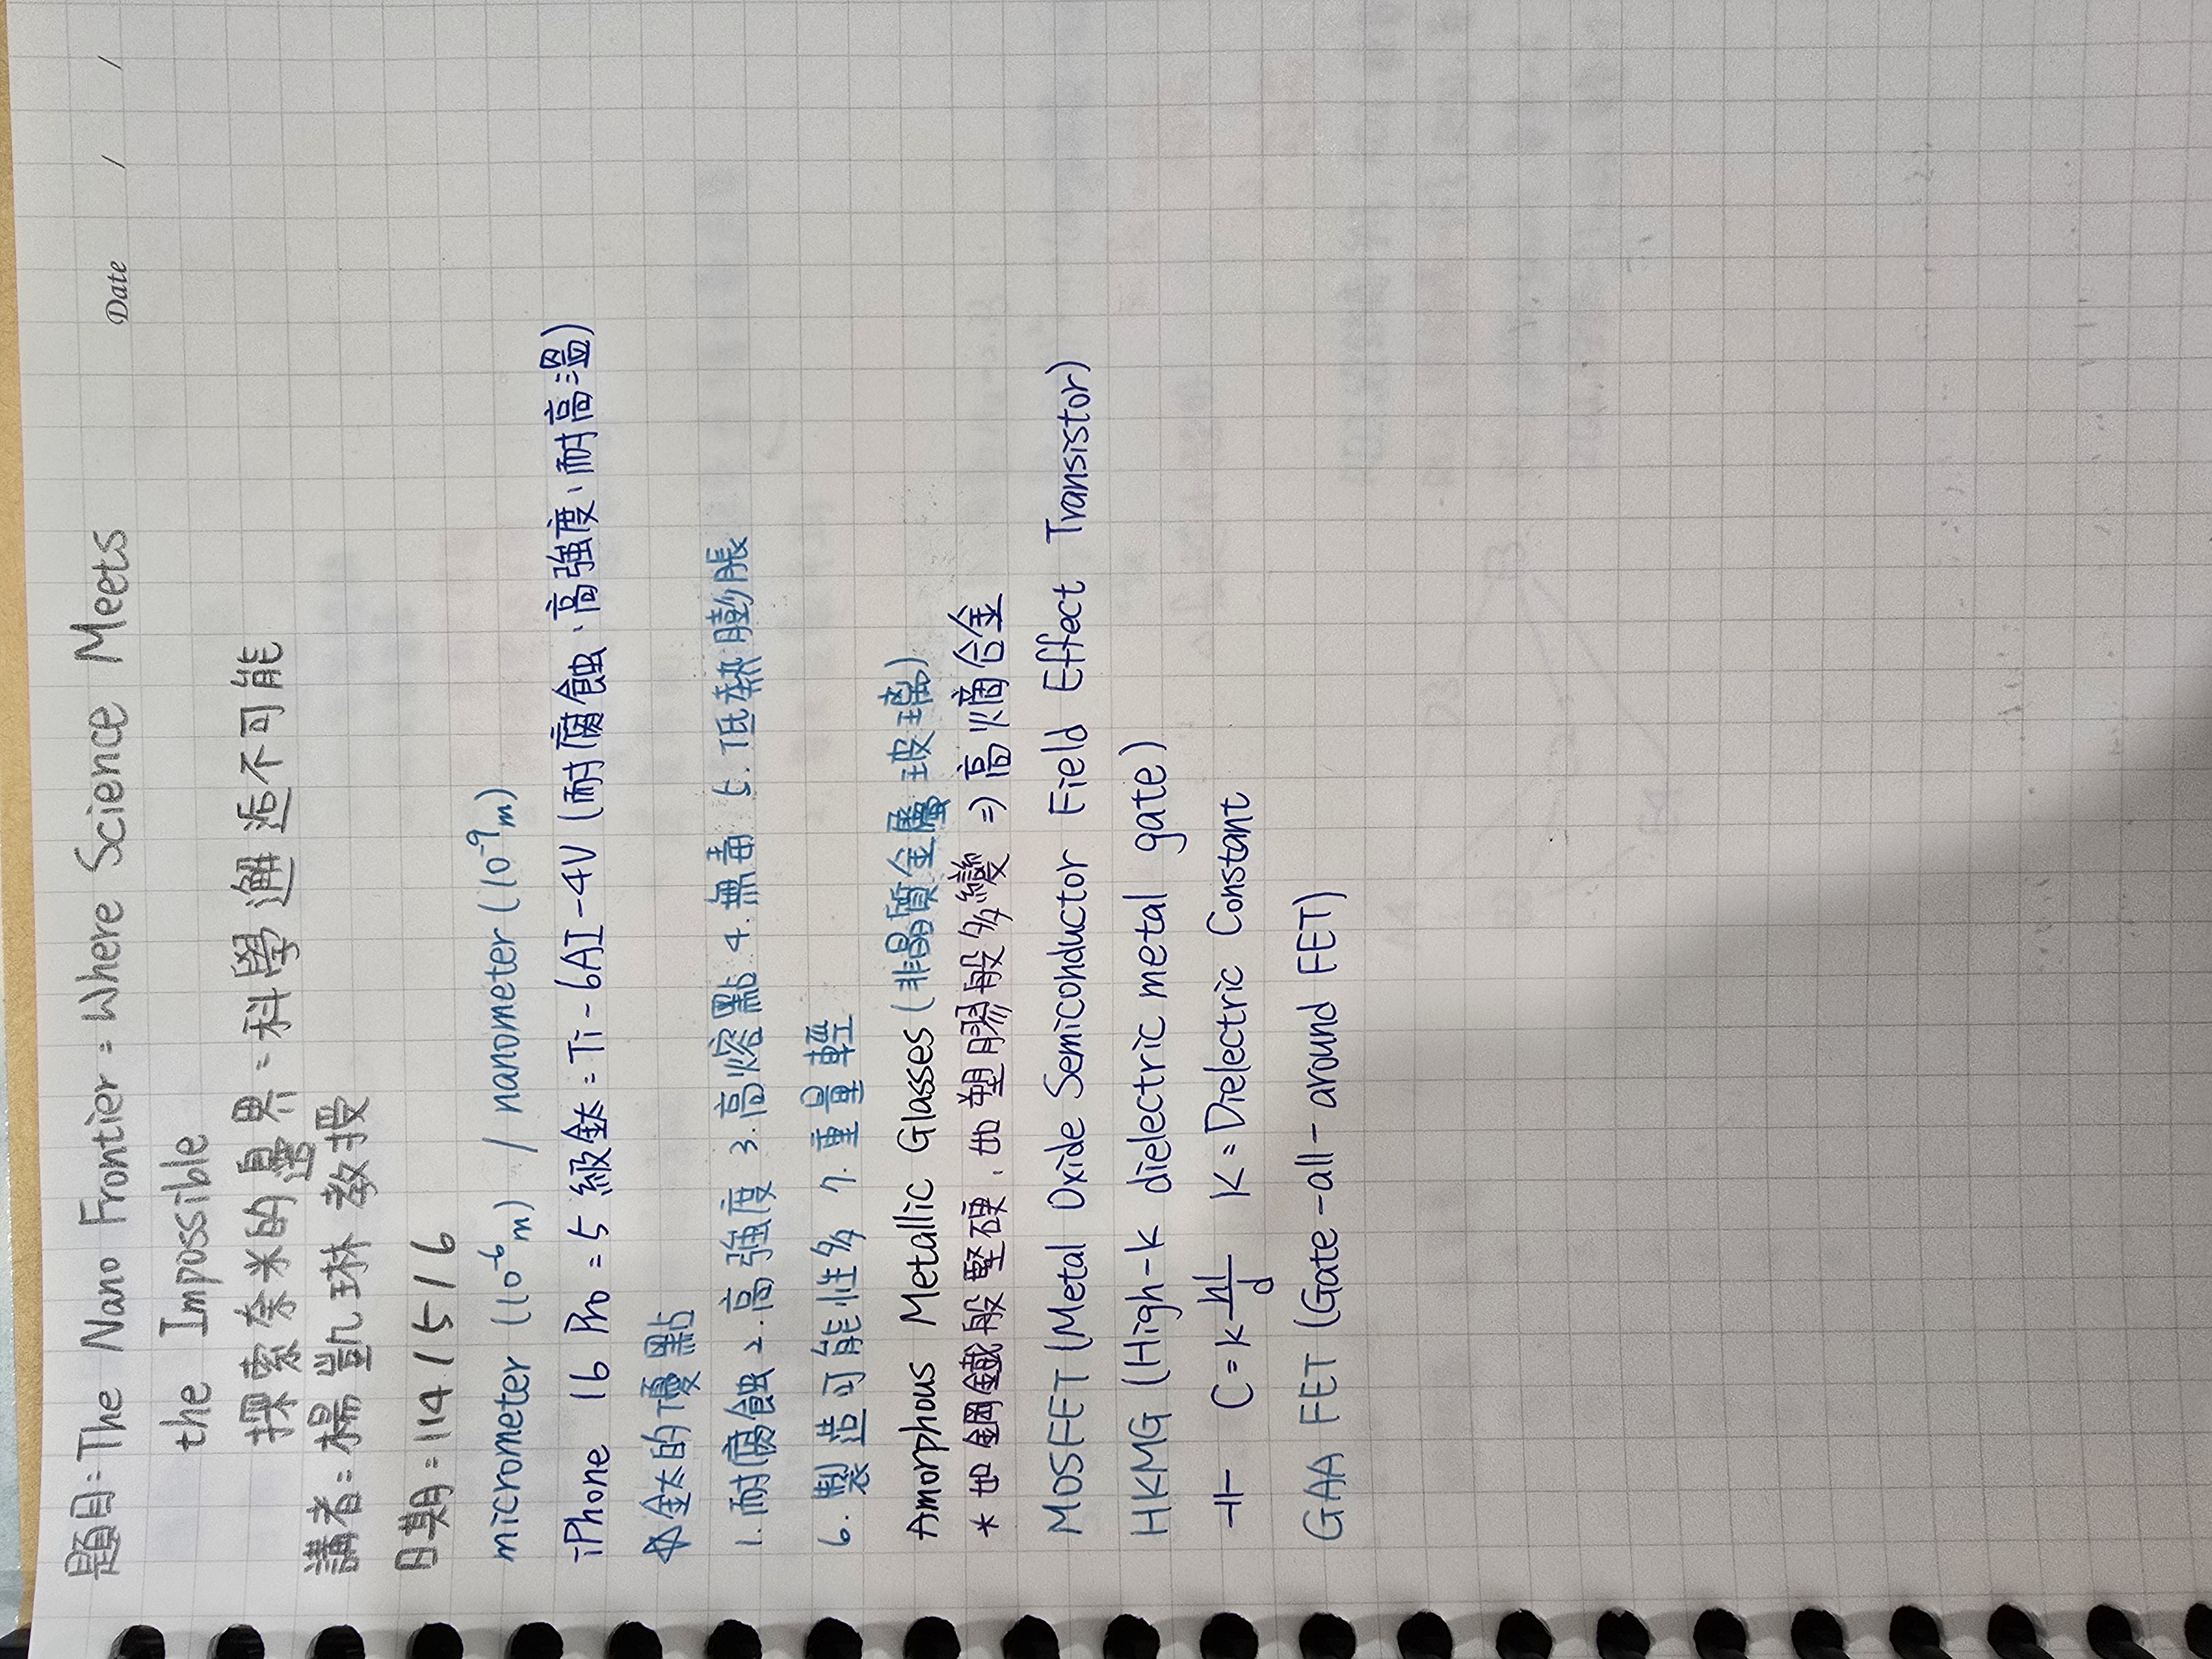 Date / /
題目: The Nano Frontier: Where Science Meets
the Impossible
探索奈米的邊界:科學邂逅不可能
講者:楊凱琳 教授
日期:114/5/6
micrometer (10⁻⁶m) / nanometer (10⁻⁹m)
iPhone 16 Pro:5級鈦:Ti-6Al-4V (耐腐蝕、高強度、耐高溫)
☆鈦的優點
1.耐腐蝕 2.高強度 3.高熔點 4.無毒 5.低熱膨脹
6.製造可能性多 7.重量輕
Amorphous Metallic Glasses (非晶質金屬玻璃)
*如鋼鐵般堅硬、如塑膠般多變 ⇒ 高熵合金
MOSFET (Metal Oxide Semiconductor Field Effect Transistor)
HKMG (High-k dielectric metal gate)
C=k wl/d K:Dielectric Constant
GAA FET (Gate-all-around FET)